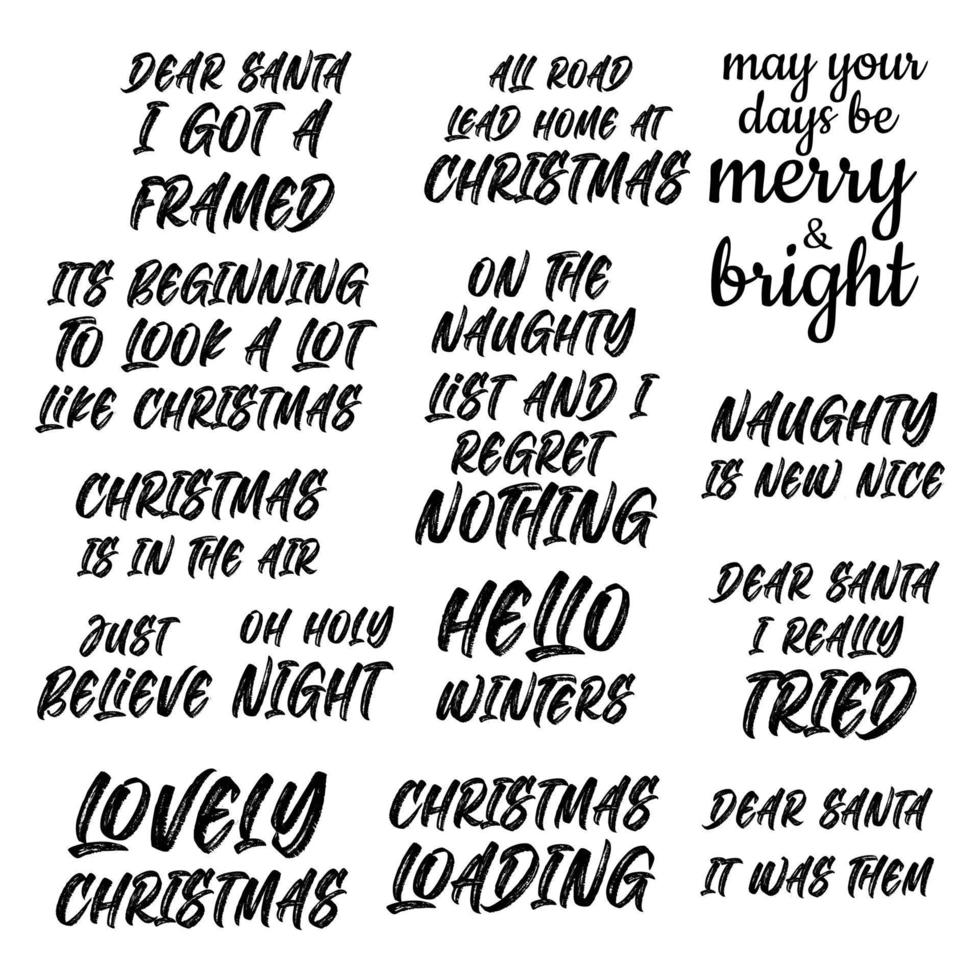 DEAR SANTA
I GOT A
FRAMED
ITS BEGINNING
TO LOOK A LOT
LIKE CHRISTMAS
CHRISTMAS
IS IN THE AIR
JUST
BELIEVE
OH HOLY
NIGHT
LOVELY
CHRISTMAS
ALL ROAD
LEAD HOME AT
CHRISTMAS
ON THE
NAUGHTY
LIST AND I
REGRET
NOTHING
HELLO
WINTERS
CHRISTMAS
LOADING
may your
days be
merry
&
bright
NAUGHTY
IS NEW NICE
DEAR SANTA
I REALLY
TRIED
DEAR SANTA
IT WAS THEM